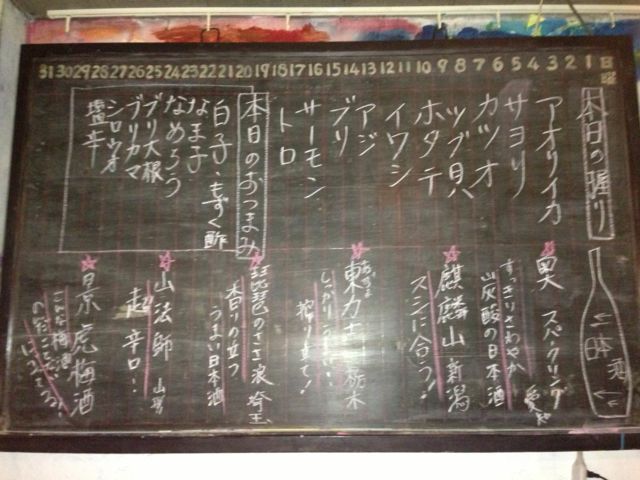 31 30 29 28 27 26 25 24 23 22 21 20 19 18 17 16 15 14 13 12 11 10 9 8 7 6 5 4 3 2 1 日曜
本日の握り
アオリイカ
サヨリ
カツオ
ツブ貝
ホタテ
イワシ
アジ
ブリ
サーモン
トロ
本日のおつまみ
白子・もずく酢
なま子
なめろう
ブリ大根
ブリカマ
シロウオ
塩辛
日本酒
奥 スパークリング 愛知
すっきりさわやか
山炭酸の日本酒
麒麟山 新潟
スシに合う!
東力士 栃木
しっかり
搾り立て!
琵琶のささ浪 埼玉
香りの立つ
うまい日本酒
山法師
超辛口!
景虎梅酒
こんな梅酒